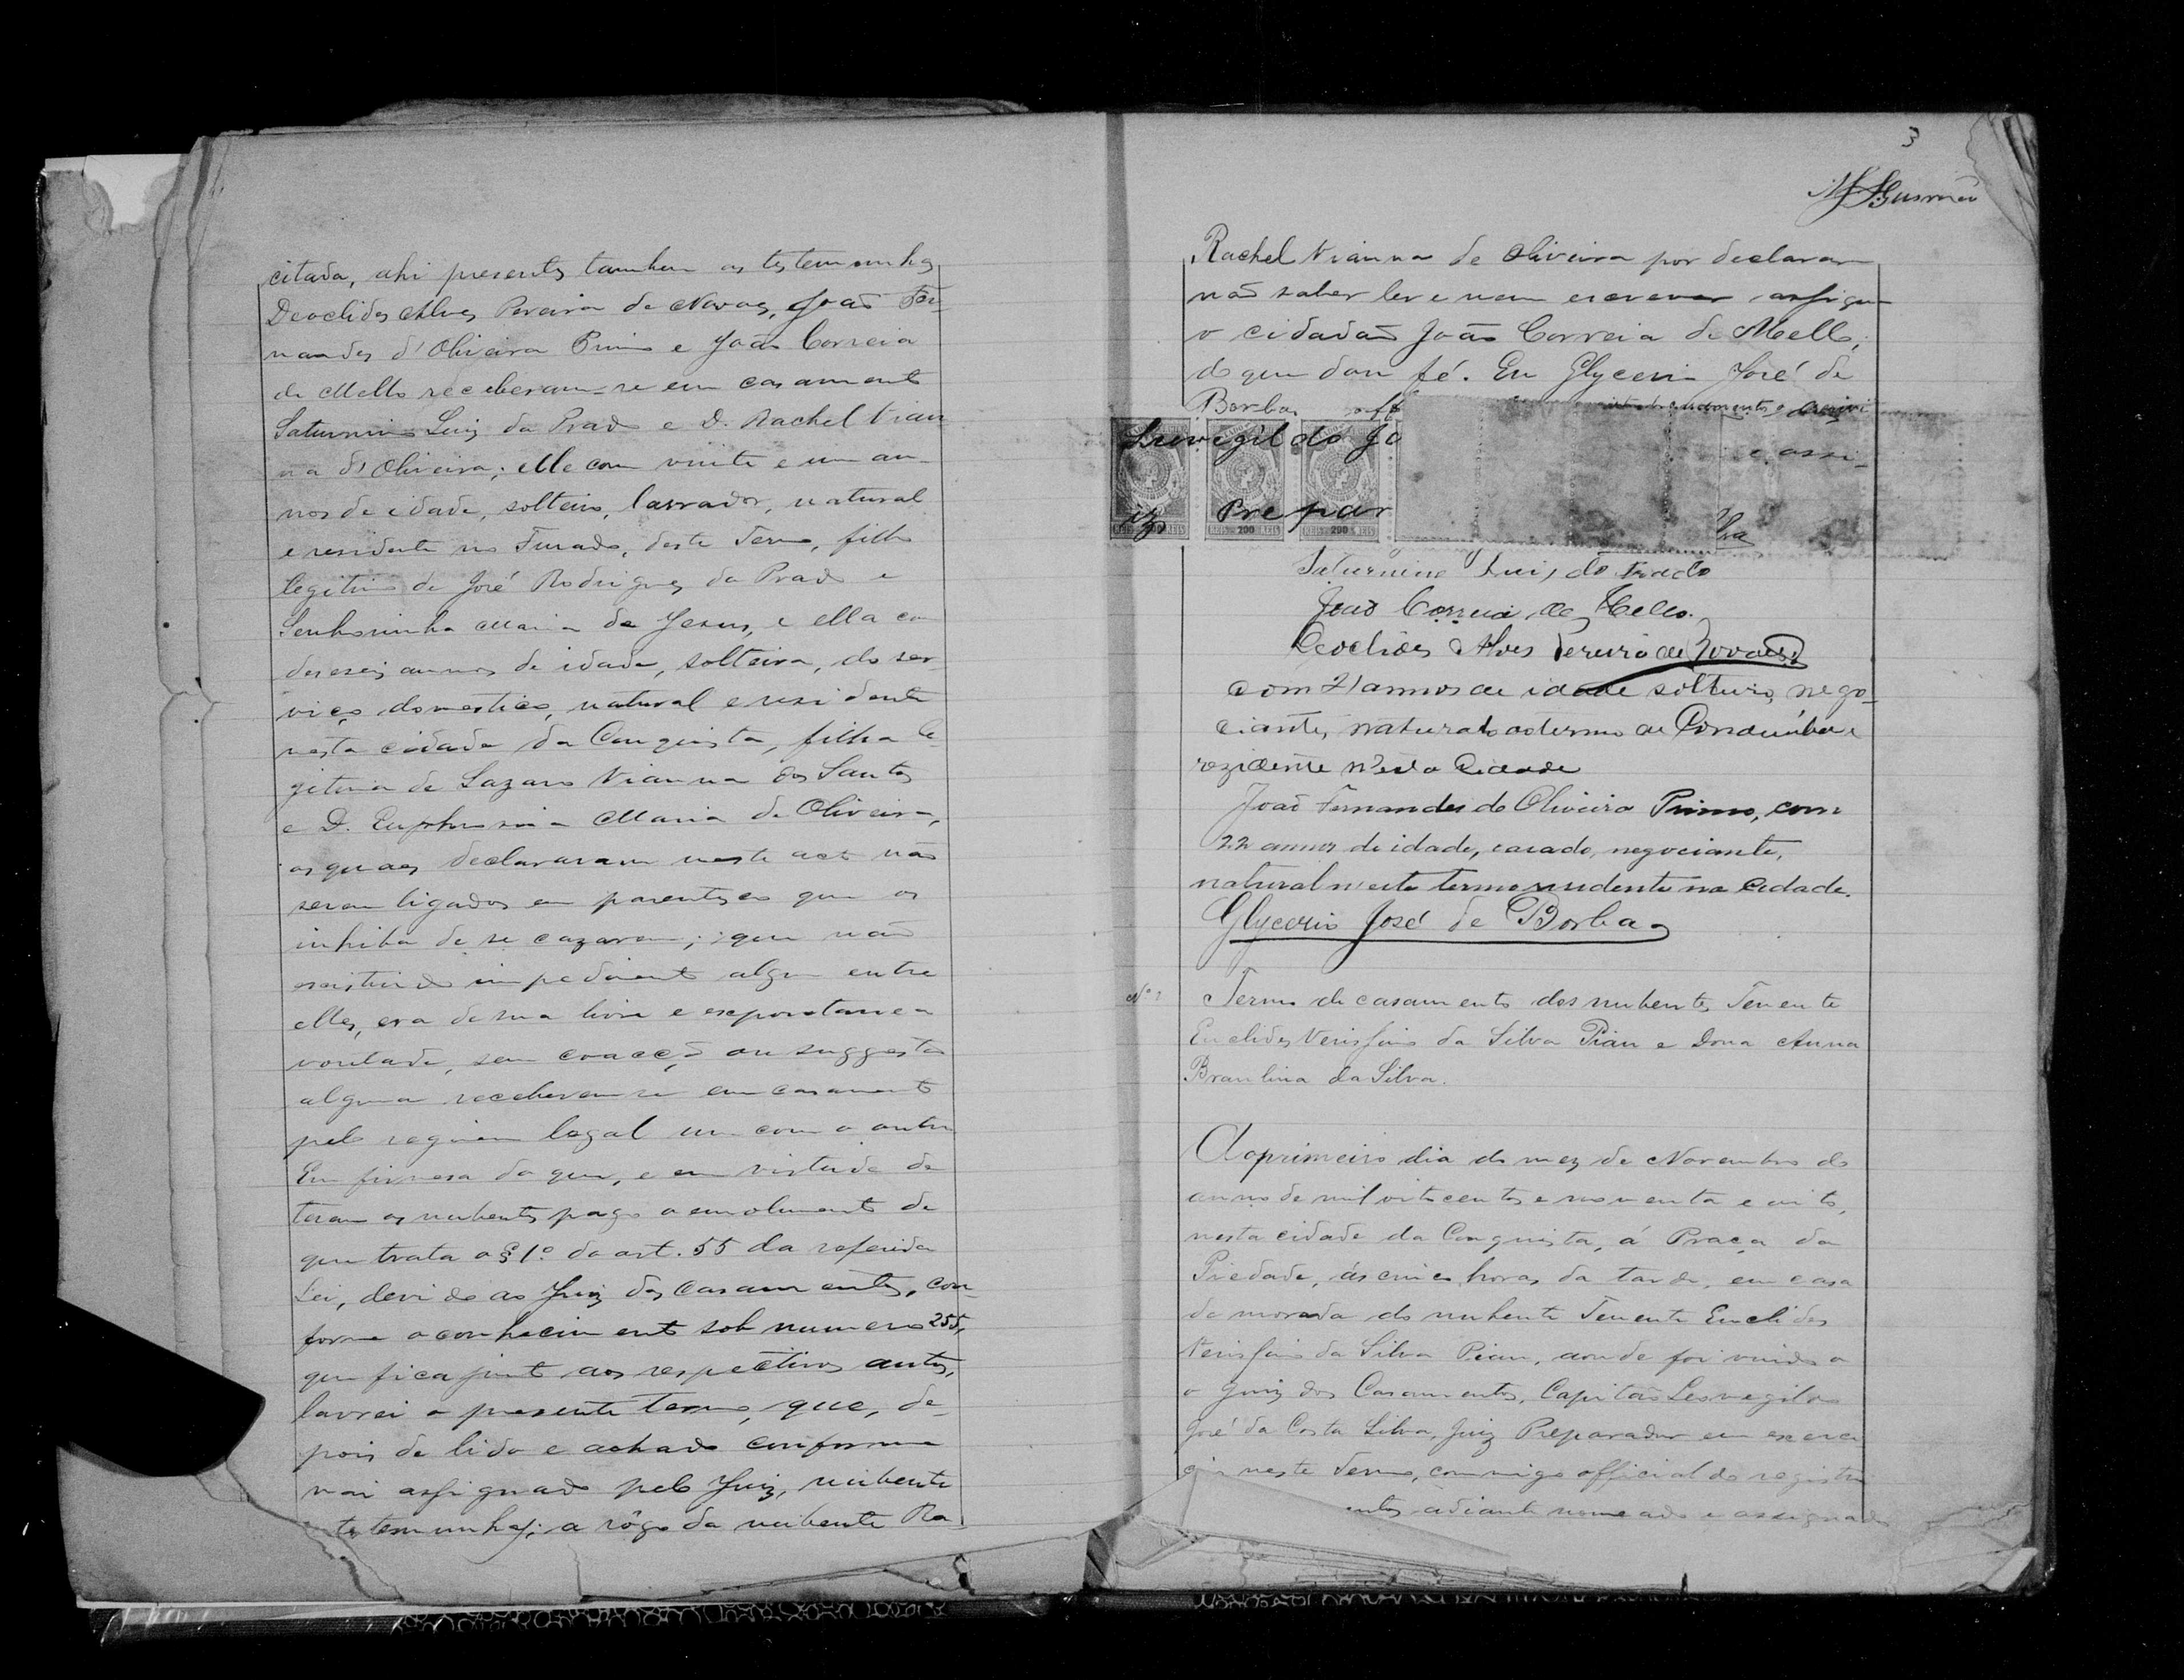 citada, ahi presentes tambem as testemunhas
Deoclides Alves Pereira de Novaes, João Fer-
nandes d'Oliveira Primo e João Correia
de Mello receberam-se em casamento
Saturnino Luiz do Prado e D. Rachel Vian
na d'Oliveira; elle com vinte e um an-
nos de idade, solteiro, lavrador, natural
e residente no Furado, deste Termo, filho
legitimo de José Rodrigues do Prado e
Senhorinha Maria de Jesus, e ella com
deseseis annos de idade, solteira, do ser-
viço domestico, natural e residente
nesta cidade da Conquista, filha le-
gitima de Lazaro Vianna dos Santos
e D. Euphrosina Maria de Oliveira,
os quaes declararam neste acto não
serem ligados em parentesco que os
inhiba de se cazarem; que não
existindo impedimento algum entre
elles, era de sua livre e expontanea
vontade, sem coacção ou suggestão
alguma receberem-se em casamento
pelo regimen legal um com o outro
Em firmesa do que, e em virtude de
terem os nubentes pago o emolumento de
que trata o § 1º do art. 55 da referida
Lei, devido ao Juiz dos Casamentos, con-
forme o conhecimento sob numero 255,
que fica junto aos respectivos autos,
lavrei o presente termo, que, de-
pois de lido e achado conforme
vai assignado pelo Juiz, nubente
testemunhas; a rôgo da nubente Ra-
3
Rachel Vianna de Oliveira por declarar
não saber ler e nem escrever assigna
o cidadão João Correia de Mello;
do que dou fé. Eu Glycerio José de
Borba, off
e assi-
Leovegildo Jo
iz Prepar
200 200
Saturnino Luis do Prado
João Correia de Mello.
Deoclides Alves Pereira de Novaes
com 21 annos de idade solteiro, nego-
ciante, natural do termo de Condeúba e
rezidente n'esta Cidade
João Fernandes de Oliveira Primo, com
22 annos de idade, casado, negociante,
natural n'este termo residente na Cidade.
Glycerio José de Borba
Nº
Termo de casamento dos nubentes Tenente
Euclides Verissimo da Silva Pian e Dona Anna
Braulina da Silva.
Ao primeiro dia do mez de Novembro do
anno de mil oitocentos e noventa e oito,
nesta cidade da Conquista, á Praça da
Piedade, ás cinco horas da tarde, em casa
de morada do nubente Tenente Euclides
Verissimo da Silva Pian, aonde foi vindo o
o Juiz dos Casamentos, Capitão Leovegildo
José da Costa Silva, Juiz Preparador em exerci
cio neste Termo, commigo official do registro
entos adiante nomeado e assignado